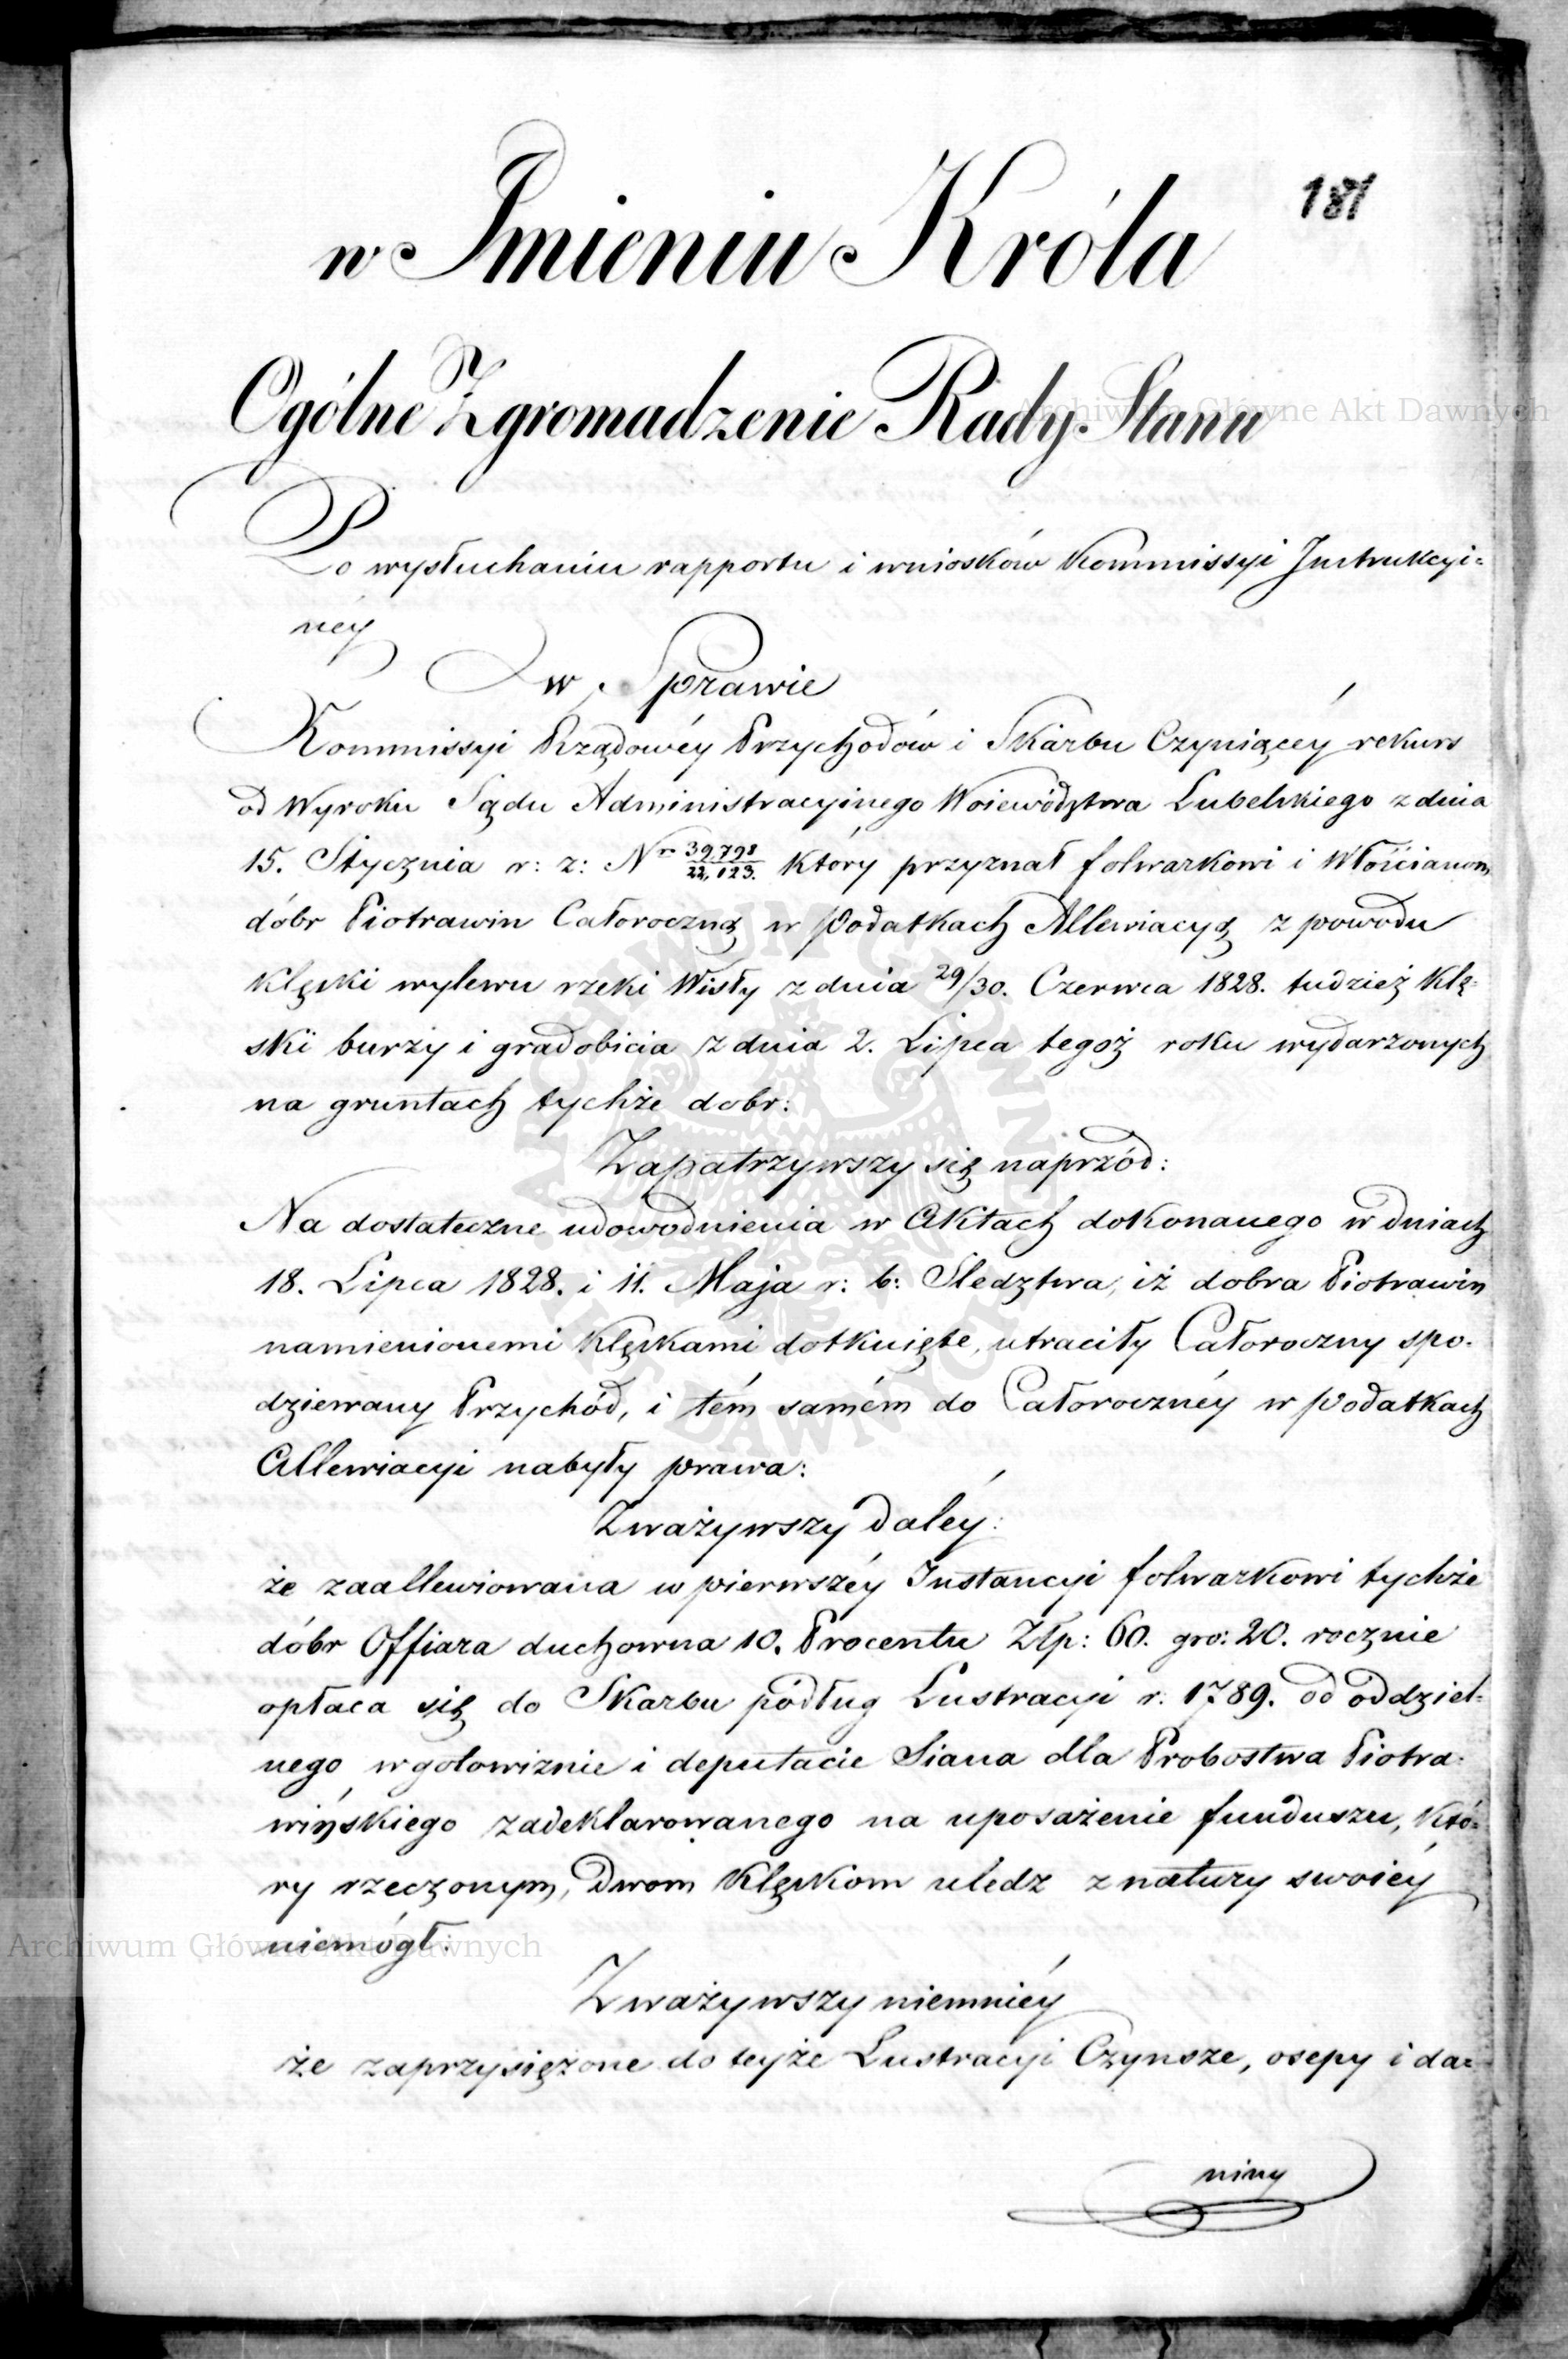 181
w Imieniu Króla
Ogólne Zgromadzenie Rady Stanu
Po wysłuchaniu rapportu i wniosków Kommissyi Instrukcyi=
néy
w Sprawie
Kommissyi Rządowéy Przychodów i Skarbu Czyniącéy rekurs
od Wyroku Sądu Administracyinego Woiewództwa Lubelskiego z dnia
15. Stycznia r: z: Nr 39,798/22,123. który przyznał folwarkowi i Włościanom
dóbr Piotrawin Całoroczną w Podatkach Allewiacyą z powodu
klęski wylewu rzeki Wisły z dnia 29/30. Czerwca 1828. tudzież klę=
ski burzy i gradobicia z dnia 2. Lipca tegoż roku wydarzonych
na gruntach tychże dobr:
Zapatrzywszy się naprzód:
Na dostateczne udowodnienia w Aktach dokonanego w dniach
18. Lipca 1828. i 11. Maja r: b: Sledztwa, iż dobra Piotrawin
namienionemi klęskami dotknięte, utraciły Całoroczny spo=
dziewany Przychód, i tém samém do Całorocznéy w Podatkach
Allewiacyi nabyły prawa:
Zważywszy daléy:
że zaallewiowana w pierwszéy Instancyi folwarkowi tychże
dóbr Offiara duchowna 10. Procentu Złp: 60. gro: 20. rocznie
opłaca się do Skarbu pódług Lustracyi r. 1789. od oddziel=
nego w gotowiznie i deputacie Siana dla Probostwa Piotra=
wińskiego zadeklarowanego na uposażenie funduszu, któ=
ry rzeczonym, dwom klęskom uledz z natury swoiéy
niemógł:
Zważywszy niemniéy
że zaprzysiężone do teyże Lustracyi Czynsze, osepy i da=
niny
Archiwum Główne Akt Dawnych
Archiwum Główne Akt Dawnych
ARCHIWUM GŁÓWNE AKT DAWNYCH